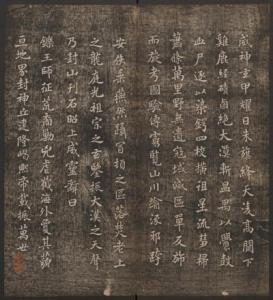 威神玄甲曜日朱旗絳天凌高闕下
雞鹿經磧鹵絕大漠斬昷禺以釁鼓
血尸逐以染鍔四校橫徂星流彗掃
蕭條萬里野無遺寇域滅區單反旆
而旋考圖驗傳窮覽山川踰涿邪跨
安侯乘燕然躡冒頓之區落焚老上
之龍庭光祖宗之玄靈振大漢之天聲
乃封山刊石昭上威靈辭曰
鑠王師征荒裔勦凶虐截海外敻其藐
亘地界封神丘建隆嵑熙帝載振萬世